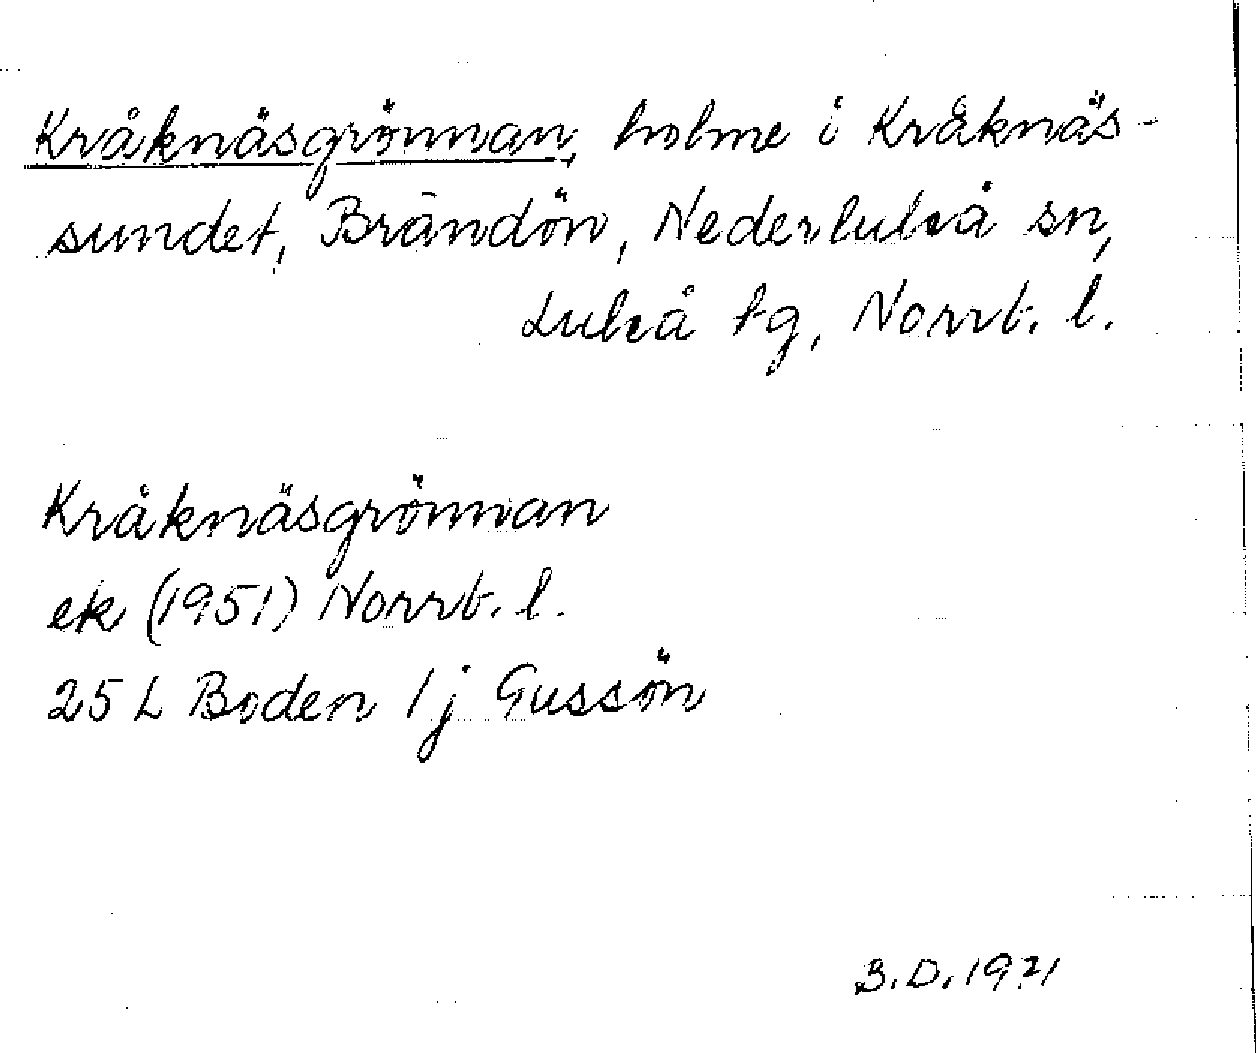 Kråknäsgrönnan, holme i Kråknäs-
sundet, Brändön, Nederluleå sn,
Luleå tg, Norrb. l.
Kråknäsgrönnan
ek (1951) Norrb. l.
25 L Boden 1 j Gussön
B.D. 1971